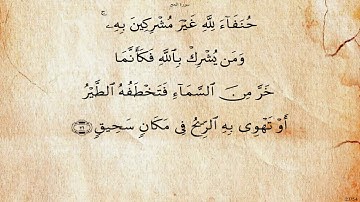 سورة الحج
حُنَفَآءَ لِلَّهِ غَيْرَ مُشْرِكِينَ بِهِۦ ۚ
وَمَن يُشْرِكْ بِٱللَّهِ فَكَأَنَّمَا
خَرَّ مِنَ ٱلسَّمَآءِ فَتَخْطَفُهُ ٱلطَّيْرُ
أَوْ تَهْوِى بِهِ ٱلرِّيحُ فِى مَكَانٍ سَحِيقٍ ٣١